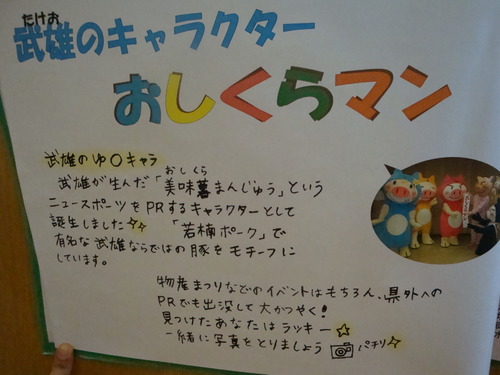 たけお
武雄のキャラクター
おしくらマン
武雄のゆ〇キャラ
おしくら
武雄が生んだ「美味暮まんじゅう」という
ニュースポーツをPRするキャラクターとして
誕生しました☆☆ 「若楠ポーク」で
有名な武雄ならではの豚をモチーフに
しています。
物産まつりなどのイベントはもちろん、県外への
PRでも出没して大かつやく!
見つけたあなたはラッキー☆
一緒に写真をとりましょう パチリ☆